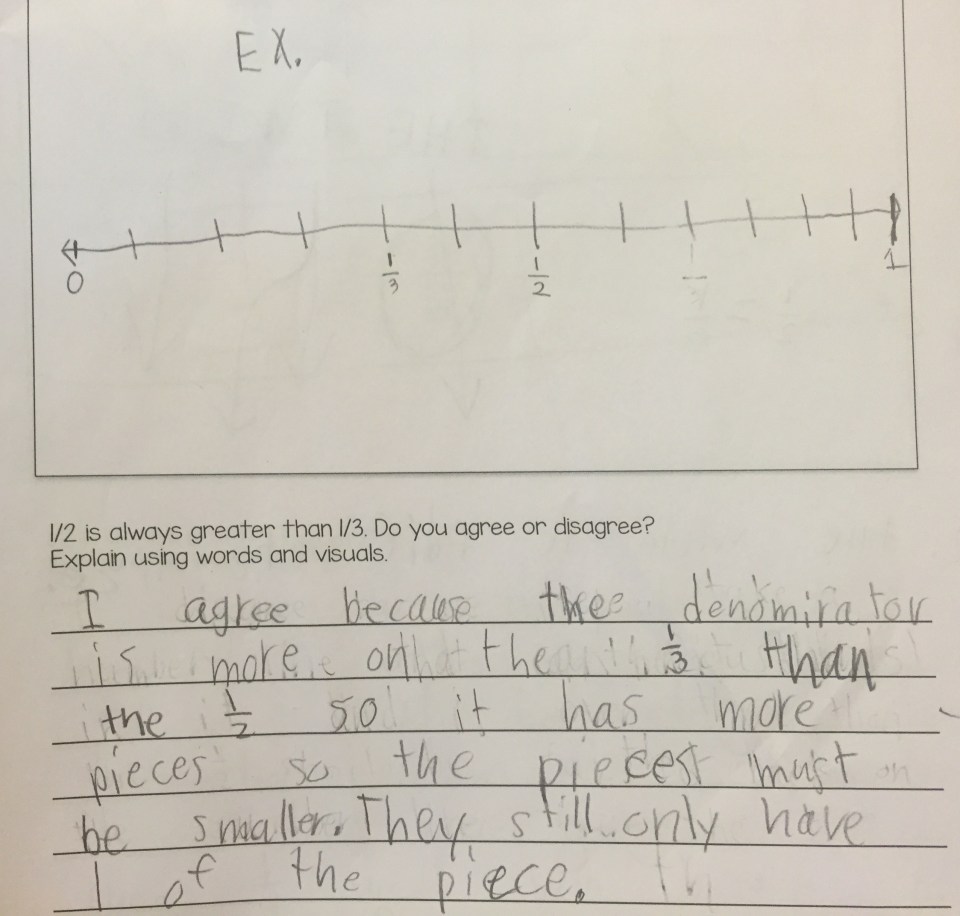 EX.
0 1/3 1/2 1
1/2 is always greater than 1/3. Do you agree or disagree?
Explain using words and visuals.
I agree because thee denomirator
is more on the 1/3 than
the 1/2 so it has more
pieces so the pieces must
be smaller. They still only have
1 of the piece.